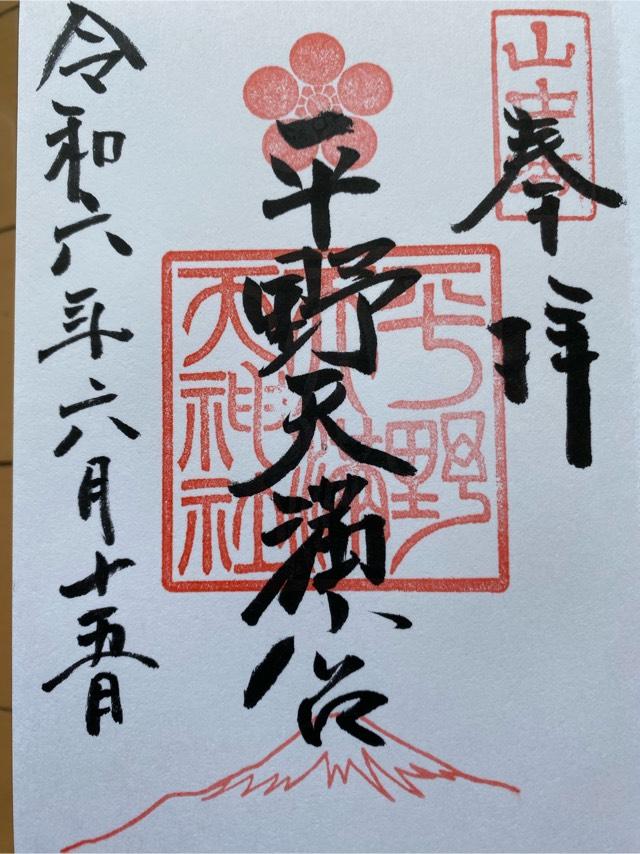 奉拝
平野天満宮
令和六年六月十五日
平野
天神社